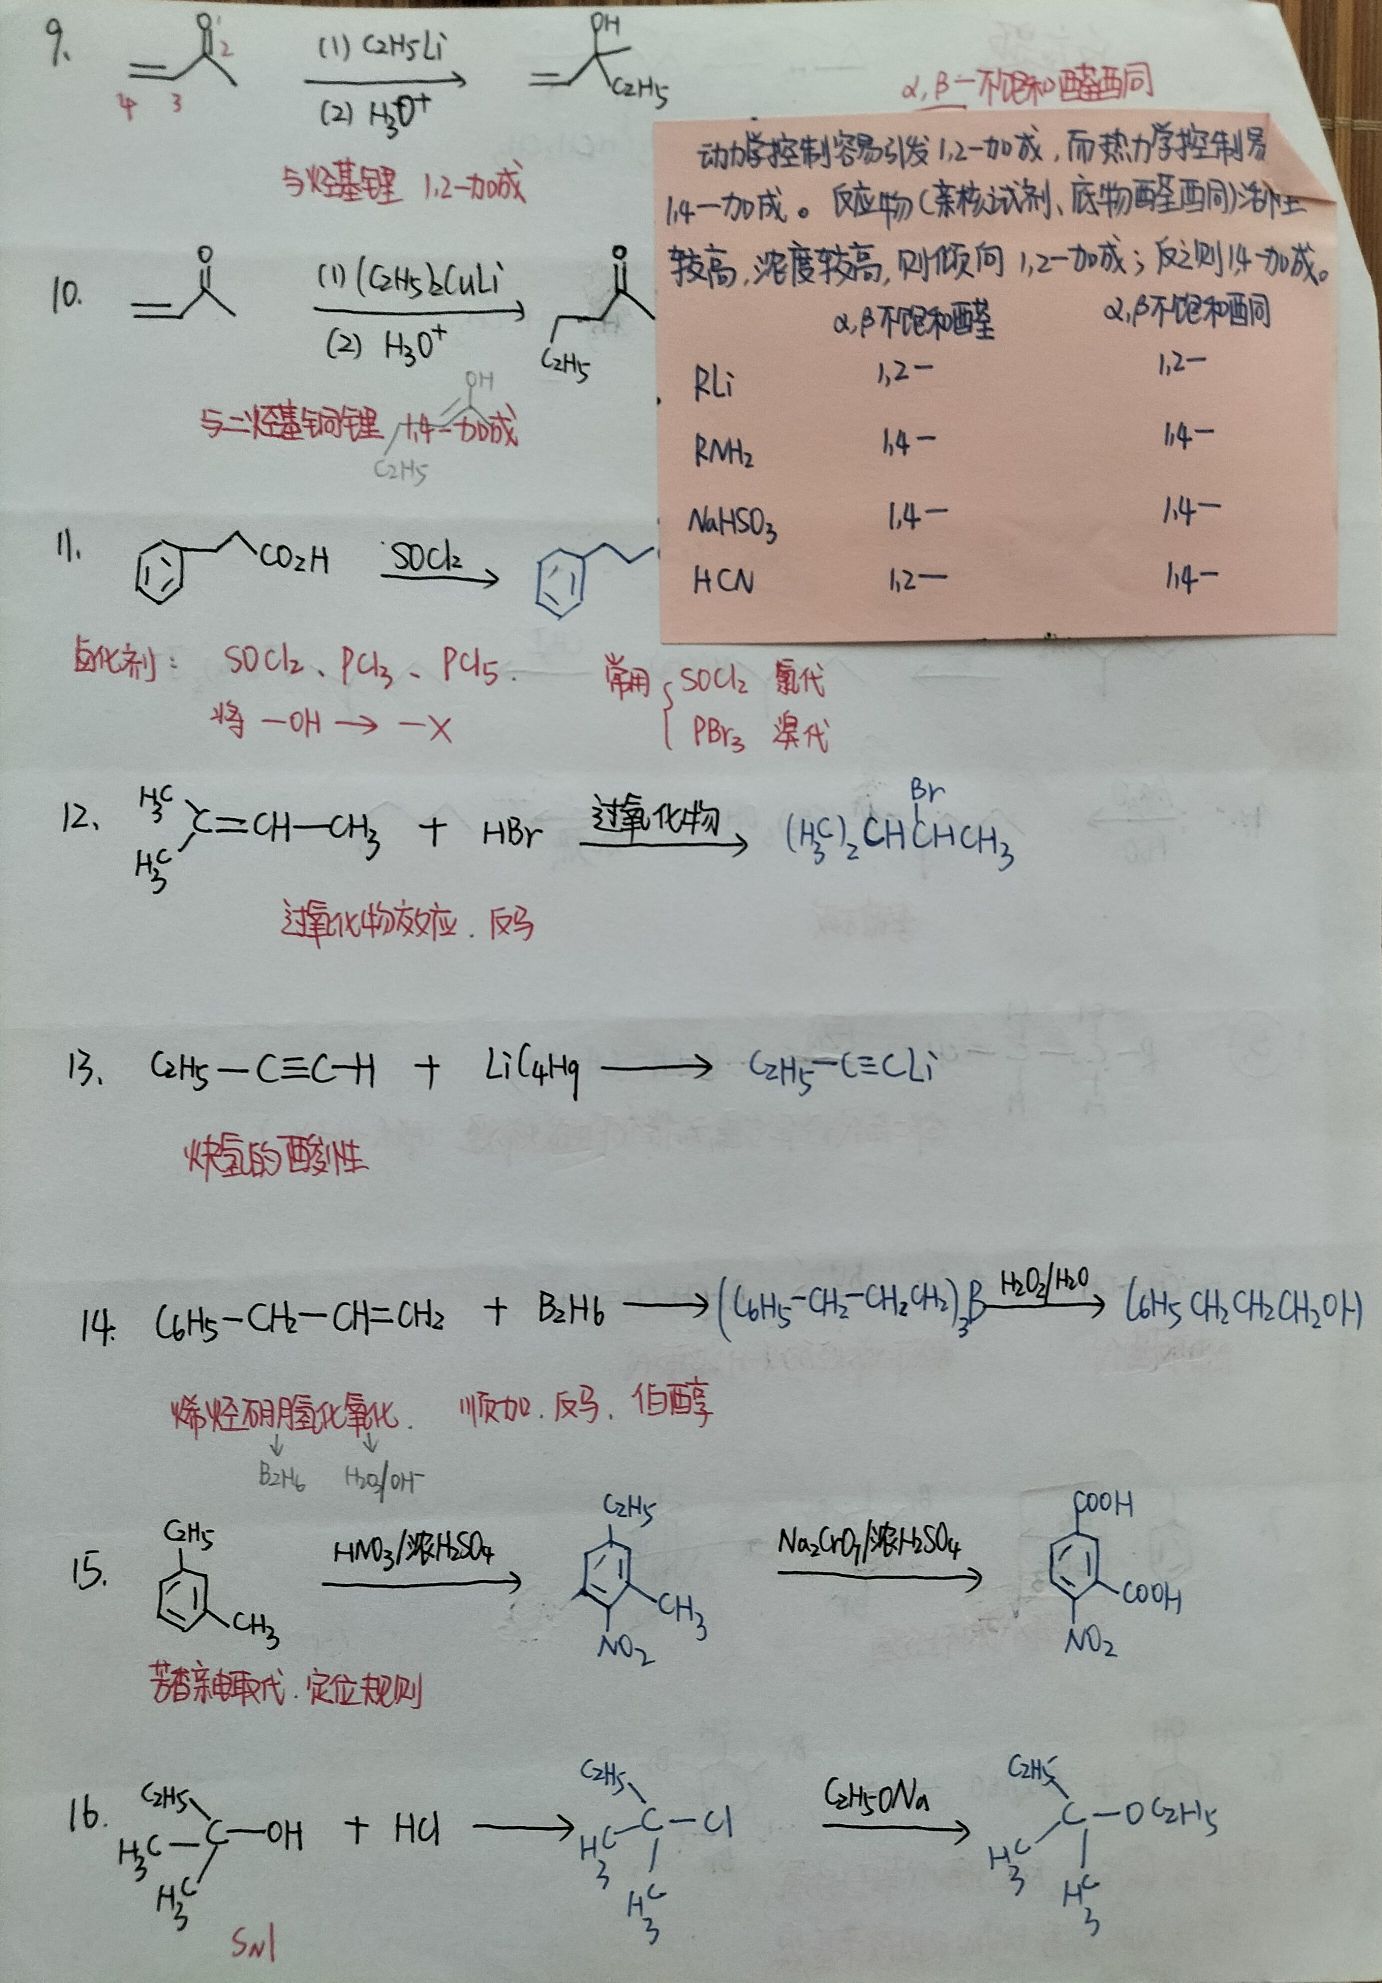 9.
O 1
2
4 3
(1) C2H5Li
(2) H3O+
OH
C2H5
与烃基锂 1,2-加成
α,β-不饱和醛酮
动力学控制容易引发1,2-加成,而热力学控制易
1,4-加成。反应物(亲核试剂、底物醛酮)活性
较高,浓度较高,则倾向1,2-加成;反之则1,4-加成。
α,β不饱和醛 α,β不饱和酮
RLi 1,2- 1,2-
RNH2 1,4- 1,4-
NaHSO3 1,4- 1,4-
HCN 1,2- 1,4-
10.
O
(1) (C2H5)2CuLi
(2) H3O+
O
C2H5
与二烃基铜锂 1,4-加成
OH
C2H5
11.
CO2H
SOCl2
卤化剂: SOCl2、PCl3、PCl5.
将 -OH → -X
常用 { SOCl2 氯代
PBr3 溴代
12.
H3C
H3C
C=CH-CH3 + HBr 过氧化物 → (H3C)2CHCHCH3
Br
过氧化物效应. 反马
13. C2H5-C≡C-H + LiC4H9 → C2H5-C≡CLi
炔氢的酸性
14. C6H5-CH2-CH=CH2 + B2H6 → (C6H5-CH2-CH2CH2)3B H2O2/H2O → C6H5CH2CH2CH2OH
烯烃硼氢化氧化. 顺加. 反马. 伯醇
↓ ↓
B2H6 H2O2/OH-
15.
C2H5
CH3
HNO3/浓H2SO4
C2H5
CH3
NO2
Na2CrO7/浓H2SO4
COOH
COOH
NO2
芳香亲电取代. 定位规则
16.
C2H5
H3C-C-OH + HCl →
H3C
C2H5
H3C C-Cl
H3C
C2H5ONa
C2H5
H3C C-OC2H5
H3C
SN1